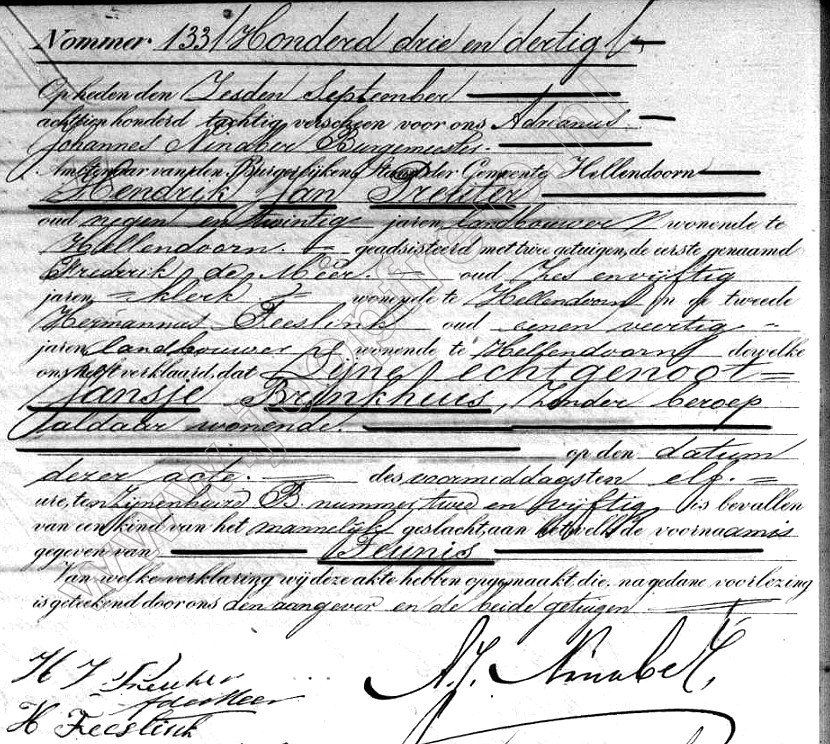 Nommer 133 / Honderd drie en dertig
Op heden den Zesden September
achttien honderd tachtig verscheen voor ons Adrianus
Johannes Burgemeester
Ambtenaar van den Burgerlijken Stand der Gemeente Hellendoorn
Hendrik Jan Treuter
oud negen en twintig jaren landbouwer wonende te
Hellendoorn. geadsisteerd met twee getuigen, de eerste genaamd
Frederik der Meer. oud zes en vijftig
jaren, klerk wonende te Hellendoorn en de tweede
Hermannus Feeslink oud eenen veertig
jaren landbouwer wonende te Hellendoorn dewelke
ons heeft verklaard, dat zijne echtgenoot
Jansje Brinkhuis, zonder beroep
aldaar wonende.
op den datum
dezer acte. des voormiddags ten elf.
ure, ten zijnen huize B. nummer twee en vijftig is bevallen
van een kind van het mannelijk geslacht, aan hetwelk de voornaam is
gegeven van Teunis
Van welke verklaring wij deze akte hebben opgemaakt die, na gedane voorlezing
is geteekend door ons den aangever en de beide getuigen
H J Treuter
F der Meer
H Feeslink
www.